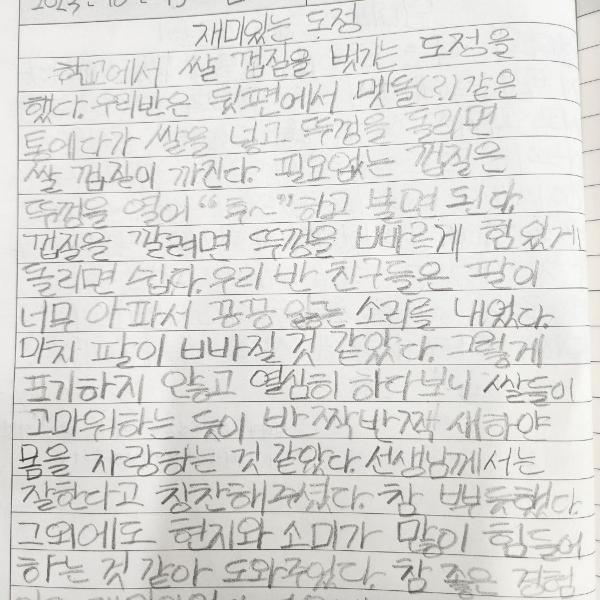 재미있는 도정
학교에서 쌀 껍질을 벗기는 도정을
했다. 우리반은 뒷편에서 멧돌(?)같은
통에다가 쌀을 넣고 뚜껑을 돌리면
쌀 껍질이 까진다. 필요없는 껍질은
뚜껑을 열어 "후~"하고 불면 된다.
껍질을 깔려면 뚜껑을 빠르게 힘있게
돌리면 쉽다. 우리 반 친구들은 팔이
너무 아파서 끙끙 않는 소리를 내었다.
마치 팔이 빠질 것 같았다. 그렇게
포기하지 않고 열심히 하다보니 쌀들이
고마워하는 듯이 반짝반짝 새하얀
몸을 자랑하는 것 같았다. 선생님께서는
잘한다고 칭찬해주셨다. 참 뿌듯했다.
그외에도 현지와 소미가 많이 힘들어
하는 것 같아 도와주었다. 참 좋은 경험